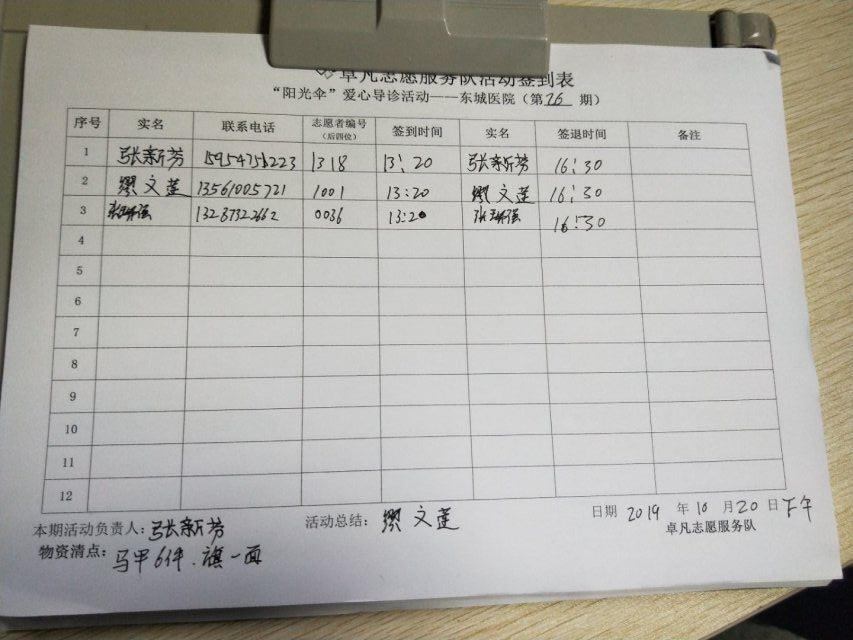 卓凡志愿服务队活动签到表
“阳光伞”爱心导诊活动——东城医院（第26期）
序号 实名 联系电话 志愿者编号（后四位） 签到时间 实名 签退时间 备注
1 张新芳 15954751223 1318 13:20 张新芳 16:30
2 缪文莲 13561005721 1001 13:20 缪文莲 16:30
3 13287322662 0036 13:20 16:30
4
5
6
7
8
9
10
11
12
本期活动负责人：张新芳 活动总结：缪文莲 日期 2019 年 10 月 20 日下午
卓凡志愿服务队
物资清点：马甲6件.旗一面